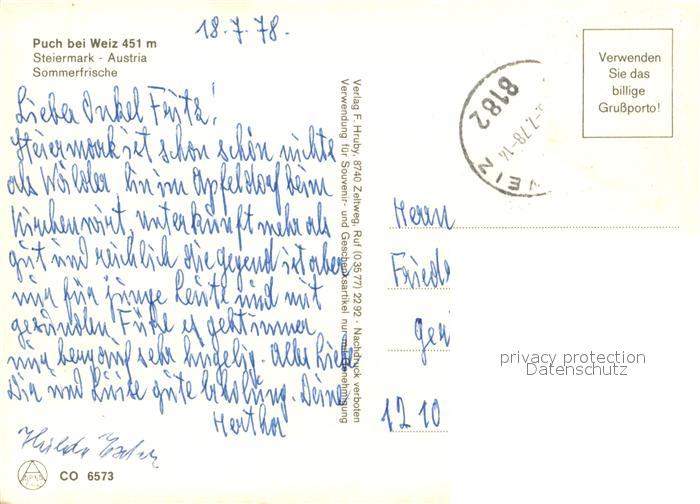 18.7.78.
Puch bei Weiz 451 m
Steiermark - Austria
Sommerfrische
Lieber Onkel Fritz!
Steiermark ist schon schön, nichts
als Wälder. Bin im Apfeldorf beim
Kirchenwirt, unterkunft mehr als
gut und reichlich die gegend ist aber
nur für junge Leute und mit
gesunden Füße es geht immer
nur bergauf sehr hügelig. Alles liebe
Dir und Luise gute Erholung. Deine
Hertha
Hilda
CO 6573
Verlag F. Hruby, 8740 Zeltweg, Ruf (0 35 77) 22 92 - Nachdruck verboten
Verwendung für Souvenir- und Geschenksartikel nur mit Genehmigung
8182
.7.78-14
Verwenden
Sie das
billige
Grußporto!
Herrn
Fried
1210
privacy protection
Datenschutz